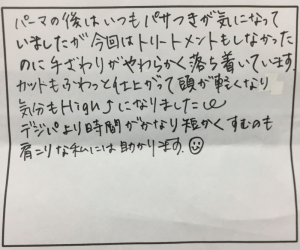 パーマの後はいつもパサつきが気になって
いましたが今回はトリートメントもしなかった
のに手ざわりがやわらかく落ち着いています。
カットもふわっと仕上がって頭が軽くなり
気分もHigh↑になりました
デジパより時間がかなり短かくすむのも
肩こりな私には助かります。